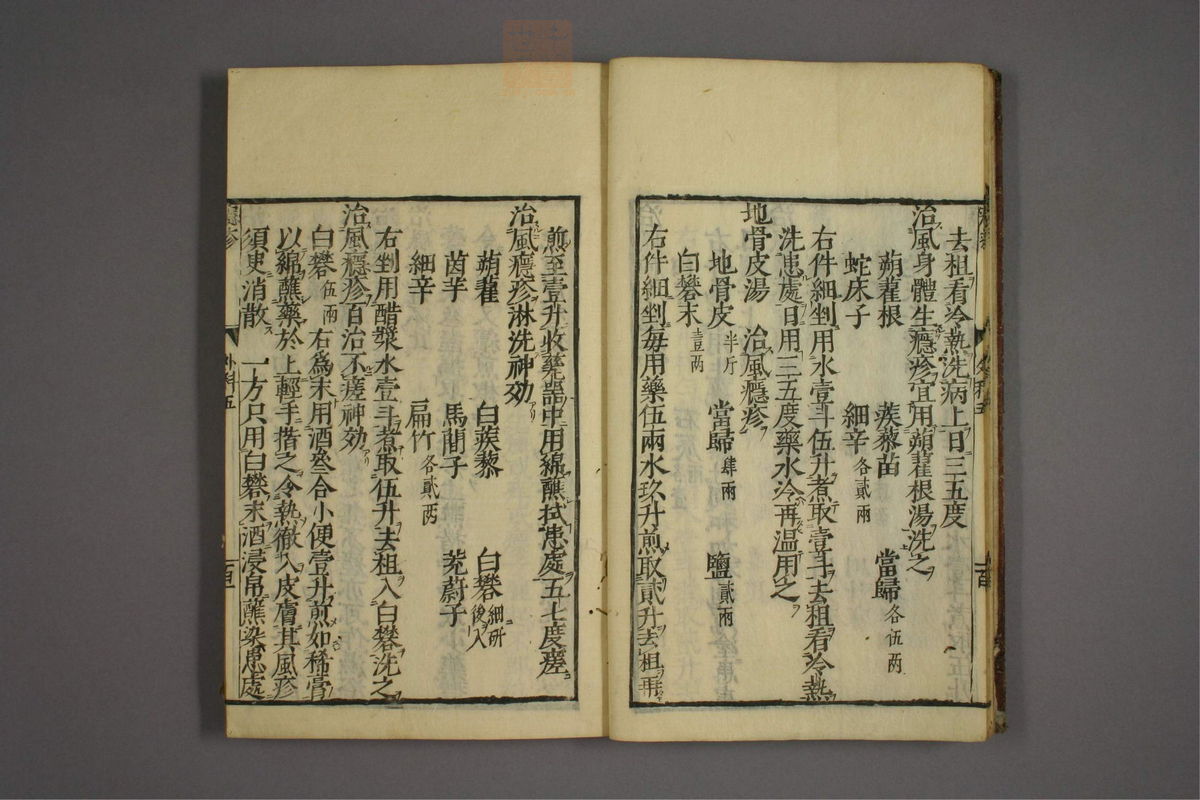 去柤看冷熱洗病上日三五度
治風身體生癮疹宜用蒴藋根湯洗之
蒴藋根　蒺藜苗　當歸各伍兩
蛇床子　細辛各貳兩
右件細剉用水壹斗伍升煮取壹斗去柤看冷熱
洗患處日用三五度藥水冷再温用之
地骨皮湯　治風癮疹
地骨皮半斤　當歸肆兩　鹽貳兩
白礬末壹兩
右件細剉每用藥伍兩水玖升煎取貳升去柤再
煎至壹升收甆噐中用綿蘸拭患處五七度瘥
治風癮疹淋洗神効
蒴藋　白蒺藜　白礬細研後入
茵芋　馬藺子　茺蔚子
細辛　扁竹各貳兩
右剉用醋漿水壹斗煮取伍升去柤入白礬洗之
治風癮疹百治不瘥神効
白礬伍兩　右爲末用酒叄合小便壹升煎如稀膏
以綿蘸藥於上輕手揩之令熱徹入皮膚其風疹
須臾消散　一方只用白礬末酒浸帛蘸染患處
癮疹　外科五　百